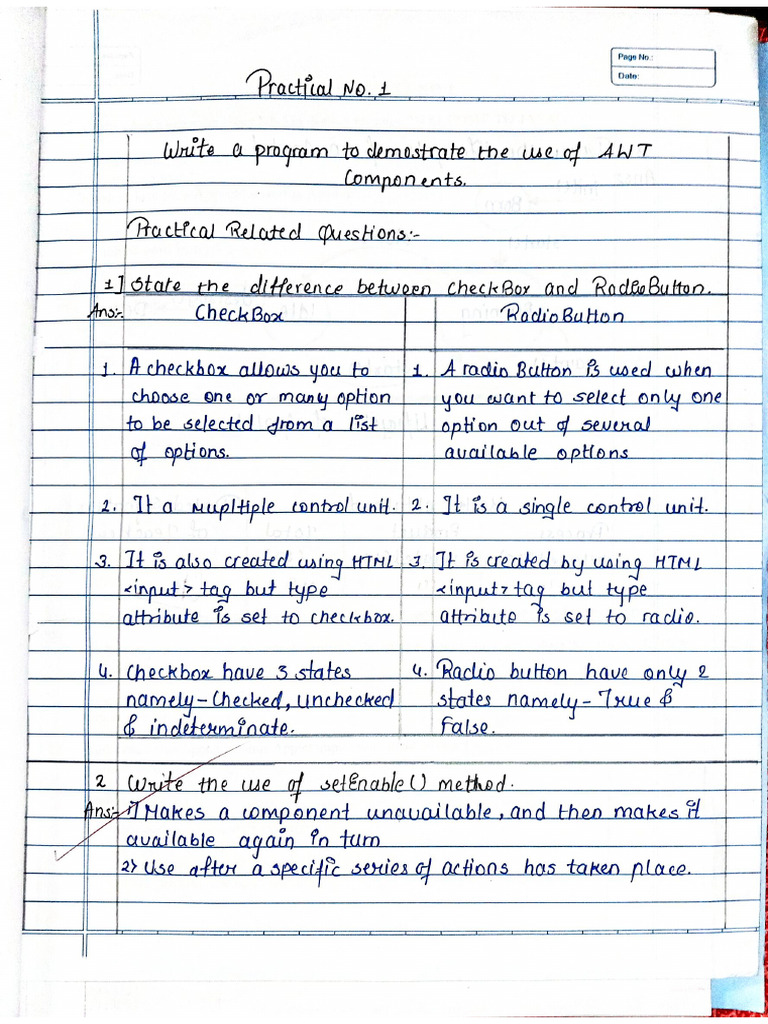 Page No.:
Date:
Practical No. 1
Write a program to demostrate the use of AWT
Components.
Practical Related Questions:-
1] State the difference between checkBox and RadioButton.
Ans:- CheckBox RadioButton
1. A checkbox allows you to 1. A radio Button is used when
choose one or many option you want to select only one
to be selected from a list option out of several
of options. available options
2. It a Mupltiple control unit. 2. It is a single control unit.
3. It is also created using HTML 3. It is created by using HTML
<input> tag but type <input> tag but type
attribute is set to checkbox. attribute is set to radio.
4. Checkbox have 3 states 4. Radio button have only 2
namely-Checked, unchecked states namely-True &
& indeterminate. False.
2 Write the use of setEnable() method.
Ans:- 1) Makes a component unavailable, and then makes it
available again in turn
2> Use after a specific series of actions has taken place.